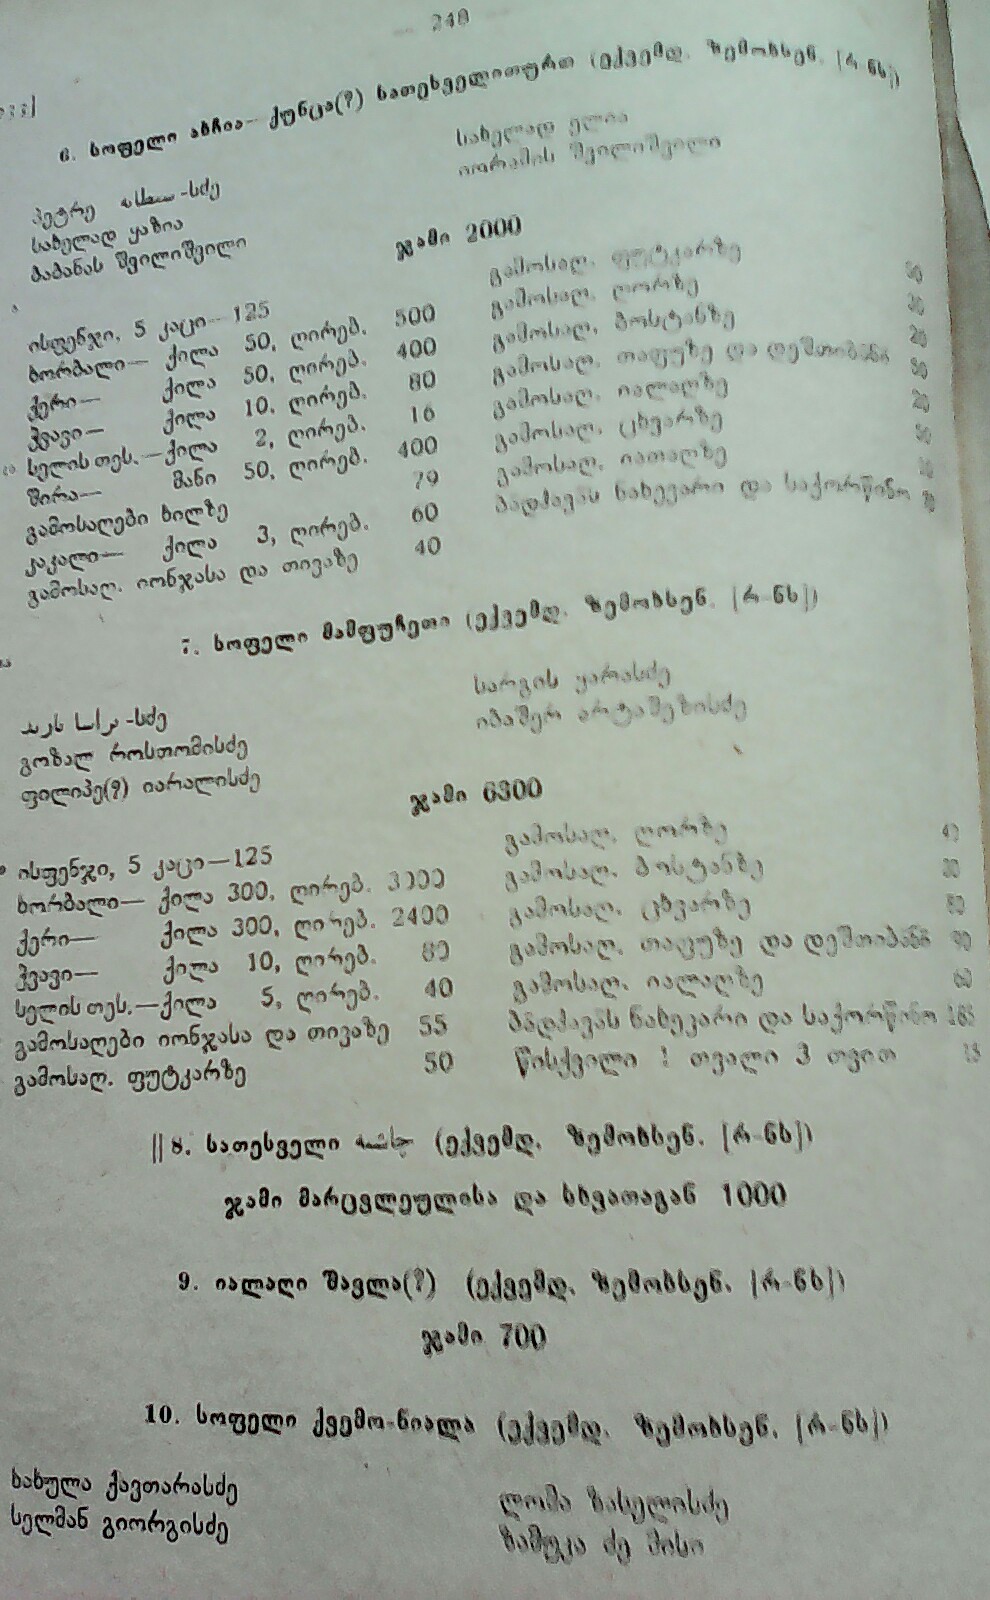 248
6. სოფელი ახჩია— ქუნცა(?) სათესველითურთ (ექვემდ. ზემოხსენ. [რ-ნს])
პეტრე -სძე
სახელად ყაზია
ბაბანას შვილიშვილი
სახელად ელია
იორამის შვილიშვილი
ჯამი 2000
ისფენჯი, 5 კაცი—125
ხორბალი— ქილა 50, ღირებ. 500
ქერი— ქილა 50, ღირებ. 400
ჭვავი— ქილა 10, ღირებ. 80
სელის თეს.—ქილა 2, ღირებ. 16
შირა— მანი 50, ღირებ. 400
გამოსაღები ხილზე 79
კაკალი— ქილა 3, ღირებ. 60
გამოსაღ. იონჯასა და თივაზე 40
გამოსაღ. ფუტკარზე
გამოსაღ. ღორზე
გამოსაღ. ბოსტანზე
გამოსაღ. თაფუზე და დეშთიბანზე
გამოსაღ. იალაღზე
გამოსაღ. ცხვარზე
გამოსაღ. იათაღზე
ბადჰავას ნახევარი და საქორწინო
7. სოფელი მამფუჩეთი (ექვემდ. ზემოხსენ. [რ-ნს])
-სძე
გოზალ როსთომისძე
ფილიპე(?) იარალისძე
სარგის ყარასძე
იბაშერ არტაშეზისძე
ჯამი 6300
ისფენჯი, 5 კაცი—125
ხორბალი— ქილა 300, ღირებ. 3000
ქერი— ქილა 300, ღირებ. 2400
ჭვავი— ქილა 10, ღირებ. 80
სელის თეს.—ქილა 5, ღირებ. 40
გამოსაღები იონჯასა და თივაზე 55
გამოსაღ. ფუტკარზე 50
გამოსაღ. ღორზე
გამოსაღ. ბოსტანზე
გამოსაღ. ცხვარზე
გამოსაღ. თაფუზე და დეშთიბანზე
გამოსაღ. იალაღზე 60
ბადჰავას ნახევარი და საქორწინო
წისქვილი 1 თვალი 3 თვით
|| 8. სათესველი (ექვემდ. ზემოხსენ. [რ-ნს])
ჯამი მარცვლეულისა და სხვათაგან 1000
9. იალაღი შავლა(?) (ექვემდ. ზემოხსენ. [რ-ნს])
ჯამი 700
10. სოფელი ქვემო-ნიალა (ექვემდ. ზემოხსენ. [რ-ნს])
ხახულა ქავთარასძე
სელმან გიორგისძე
ლომა ზასელისძე
ზამტკა ძე მისი